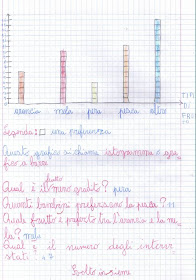 arancia mela pera pesca altre
TIPI
DI
FRUTTI
Legenda: □ una preferenza
Questo grafico si chiama istogramma o gra-
fico a barre
Qual è il frutto meno gradito? pera
Quanti bambini preferiscono la pesca? 11
Quale frutto è preferito tra l'arancia e la me-
la? mela
Qual è il numero degli intervi-
stati?
Svolto insieme